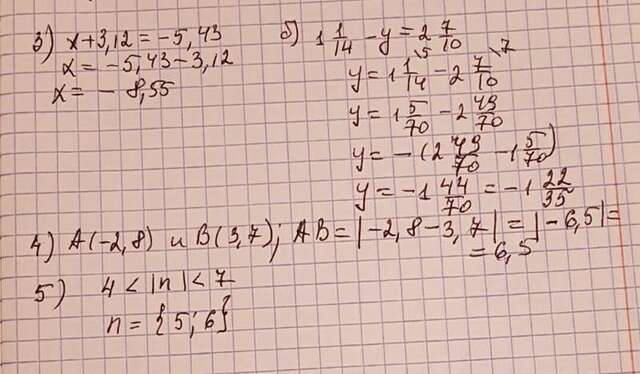 3) x + 3,12 = -5,43
x = -5,43 - 3,12
x = - 8,55
б) 1 1/14 - y = 2 7/10
y = 1 1/14 \5 - 2 7/10 \7
y = 1 5/70 - 2 49/70
y = - (2 49/70 - 1 5/70)
y = -1 44/70 = -1 22/35
4) A(-2,8) и B(3,7); AB = |-2,8 - 3,7| = |-6,5| =
= 6,5
5) 4 < |n| < 7
n = {5; 6}